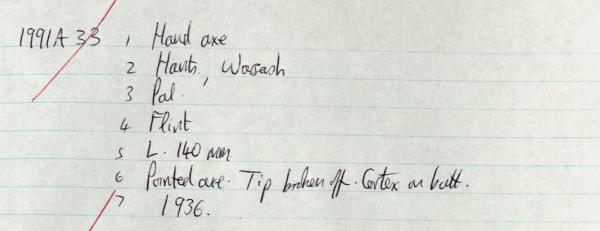 1991A 33 1 Hand axe
2 Hants, Warsash
3 Pal.
4 Flint
5 L. 140 mm
6 Pointed axe. Tip broken off. Cortex on butt.
7 1936.